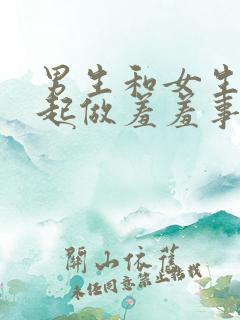 男生和女生
起做羞羞事
開山依舊
未经同意禁止转载